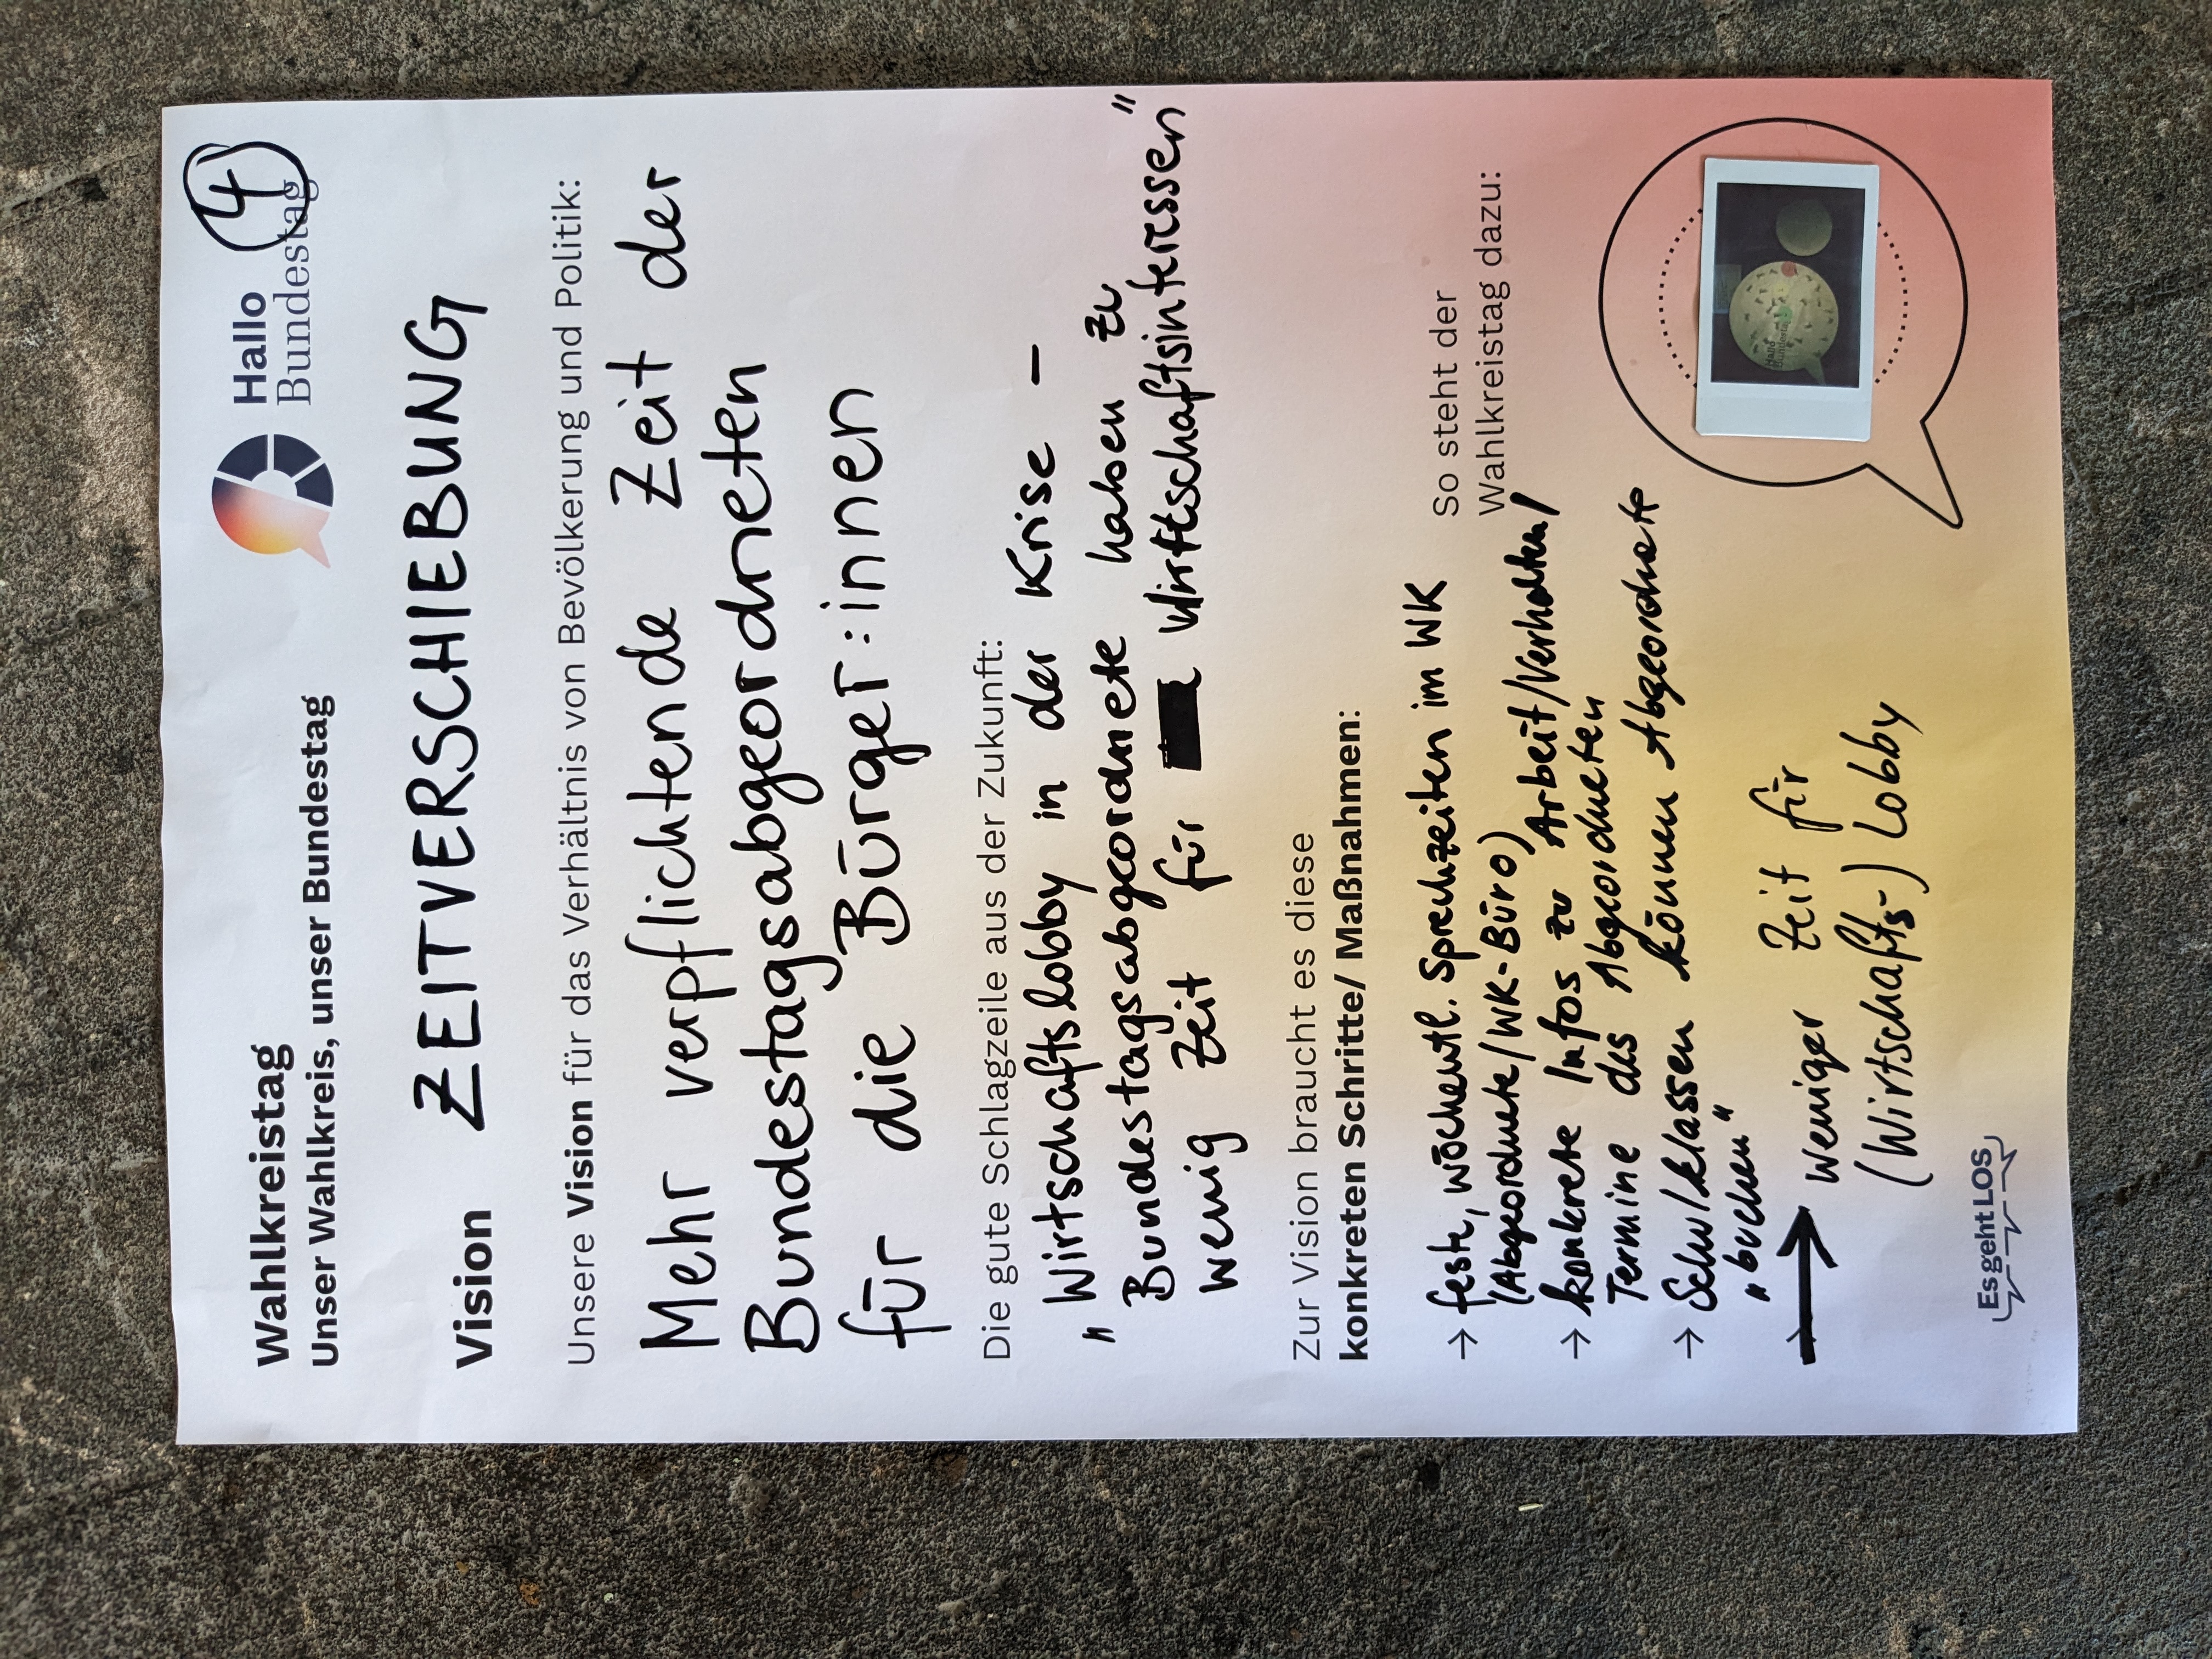 Wahlkreistag
Unser Wahlkreis, unser Bundestag
Hallo
Bundestag
4
Vision ZEITVERSCHIEBUNG
Unsere Vision für das Verhältnis von Bevölkerung und Politik:
Mehr verpflichtende Zeit der
Bundestagsabgeordneten
für die Bürger:innen
Die gute Schlagzeile aus der Zukunft:
"Wirtschaftslobby in der Krise –
Bundestagsabgeordnete haben zu
wenig Zeit für Wirtschaftsinteressen"
Zur Vision braucht es diese
konkreten Schritte/ Maßnahmen:
→ feste, wöchentl. Sprechzeiten im WK
(Abgeordnete/WK-Büro)
→ konkrete Infos zu Arbeit/Verhalten/
Termine des Abgeordneten
→ Schul/klassen können Abgeordnete
"buchen"
→ weniger Zeit für
(Wirtschafts-) Lobby
So steht der
Wahlkreistag dazu:
Hallo
Bundestag
Es geht LOS